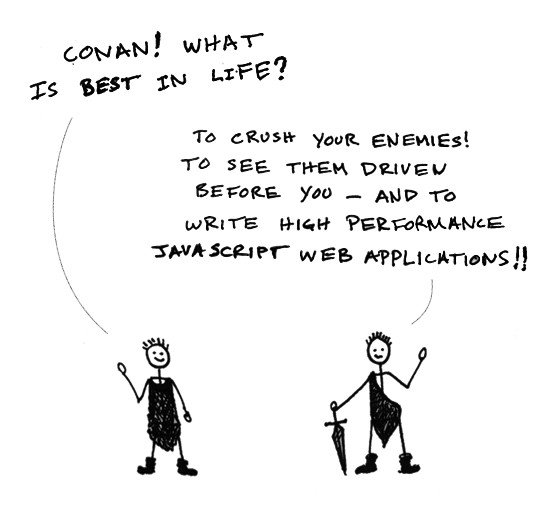 CONAN! WHAT
IS BEST IN LIFE?
TO CRUSH YOUR ENEMIES!
TO SEE THEM DRIVEN
BEFORE YOU — AND TO
WRITE HIGH PERFORMANCE
JAVASCRIPT WEB APPLICATIONS!!